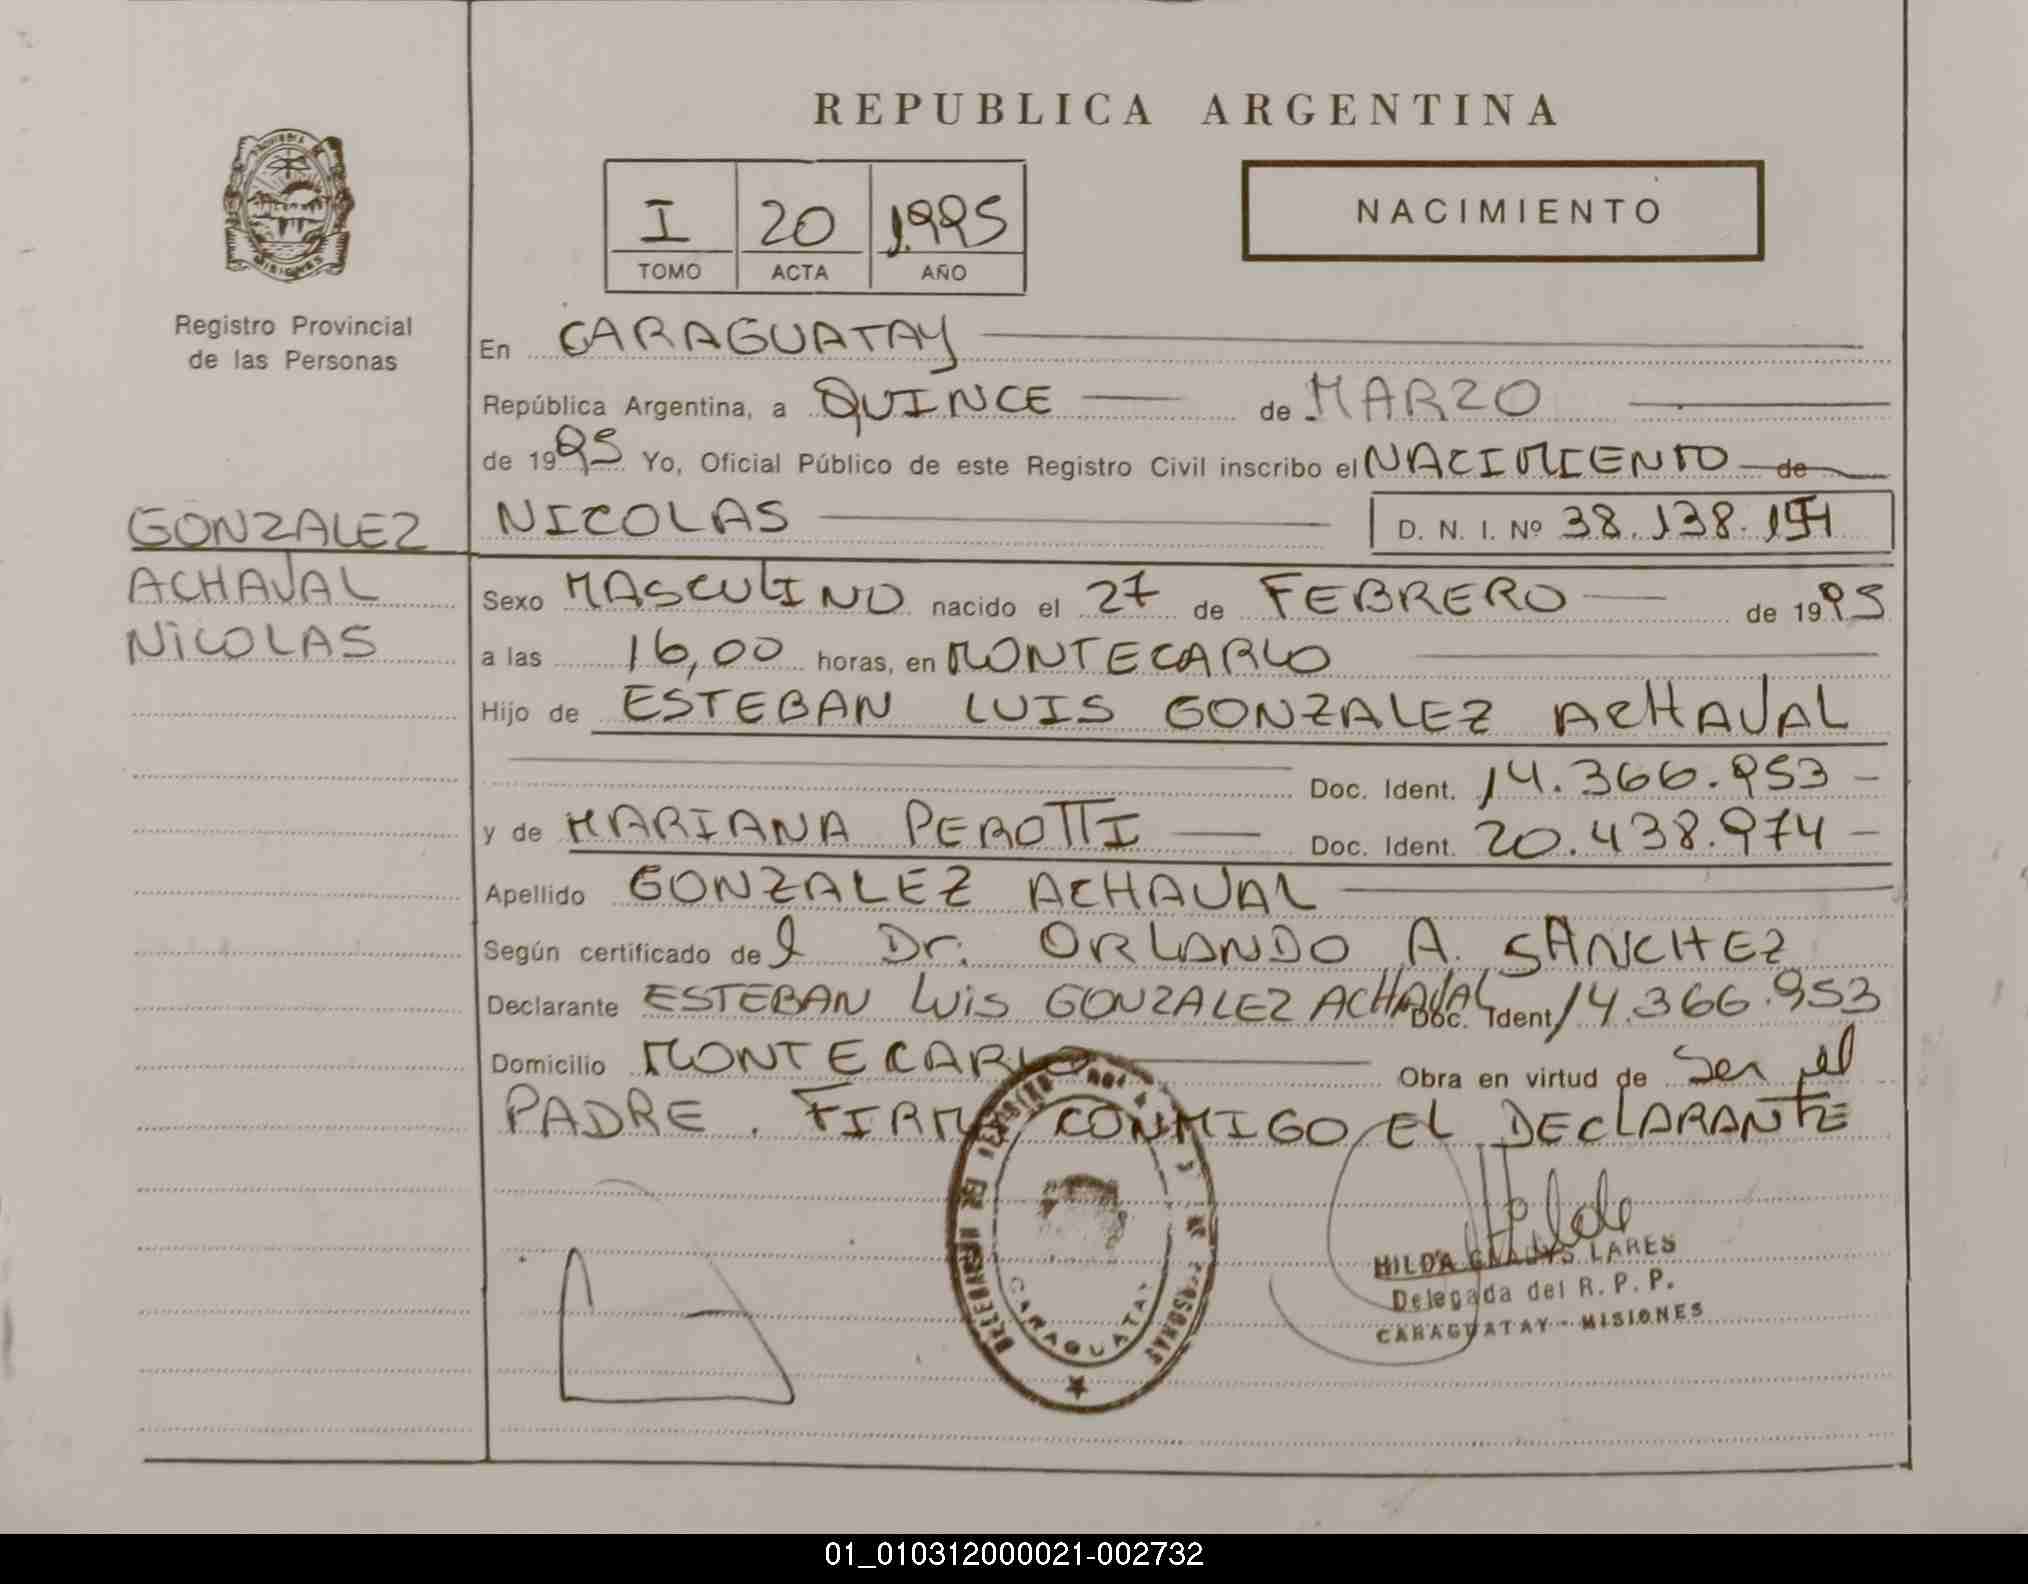 REPUBLICA ARGENTINA
PROVINCIA
MISIONES
Registro Provincial
de las Personas
I 20 1995
TOMO ACTA AÑO
NACIMIENTO
En CARAGUATAY
República Argentina, a QUINCE de MARZO
de 1995 Yo, Oficial Público de este Registro Civil inscribo el NACIMIENTO de
NICOLAS D. N. I. Nº 38.138.154
GONZALEZ
ACHAVAL
NICOLAS
Sexo MASCULINO nacido el 27 de FEBRERO de 1995
a las 16,00 horas, en MONTECARLO
Hijo de ESTEBAN LUIS GONZALEZ ACHAVAL
Doc. Ident. 14.366.953
y de MARIANA PEROTTI Doc. Ident. 20.438.974
Apellido GONZALEZ ACHAVAL
Según certificado del Dr. ORLANDO A. SANCHEZ
Declarante ESTEBAN LUIS GONZALEZ ACHAVAL Doc. Ident 14.366.953
Domicilio MONTECARLO Obra en virtud de Ser el
PADRE. FIRMA CONMIGO EL DECLARANTE
CARAGUATAY
HILDA GLADYS LARES
Delegada del R. P. P.
CARAGUATAY - MISIONES
01_010312000021-002732